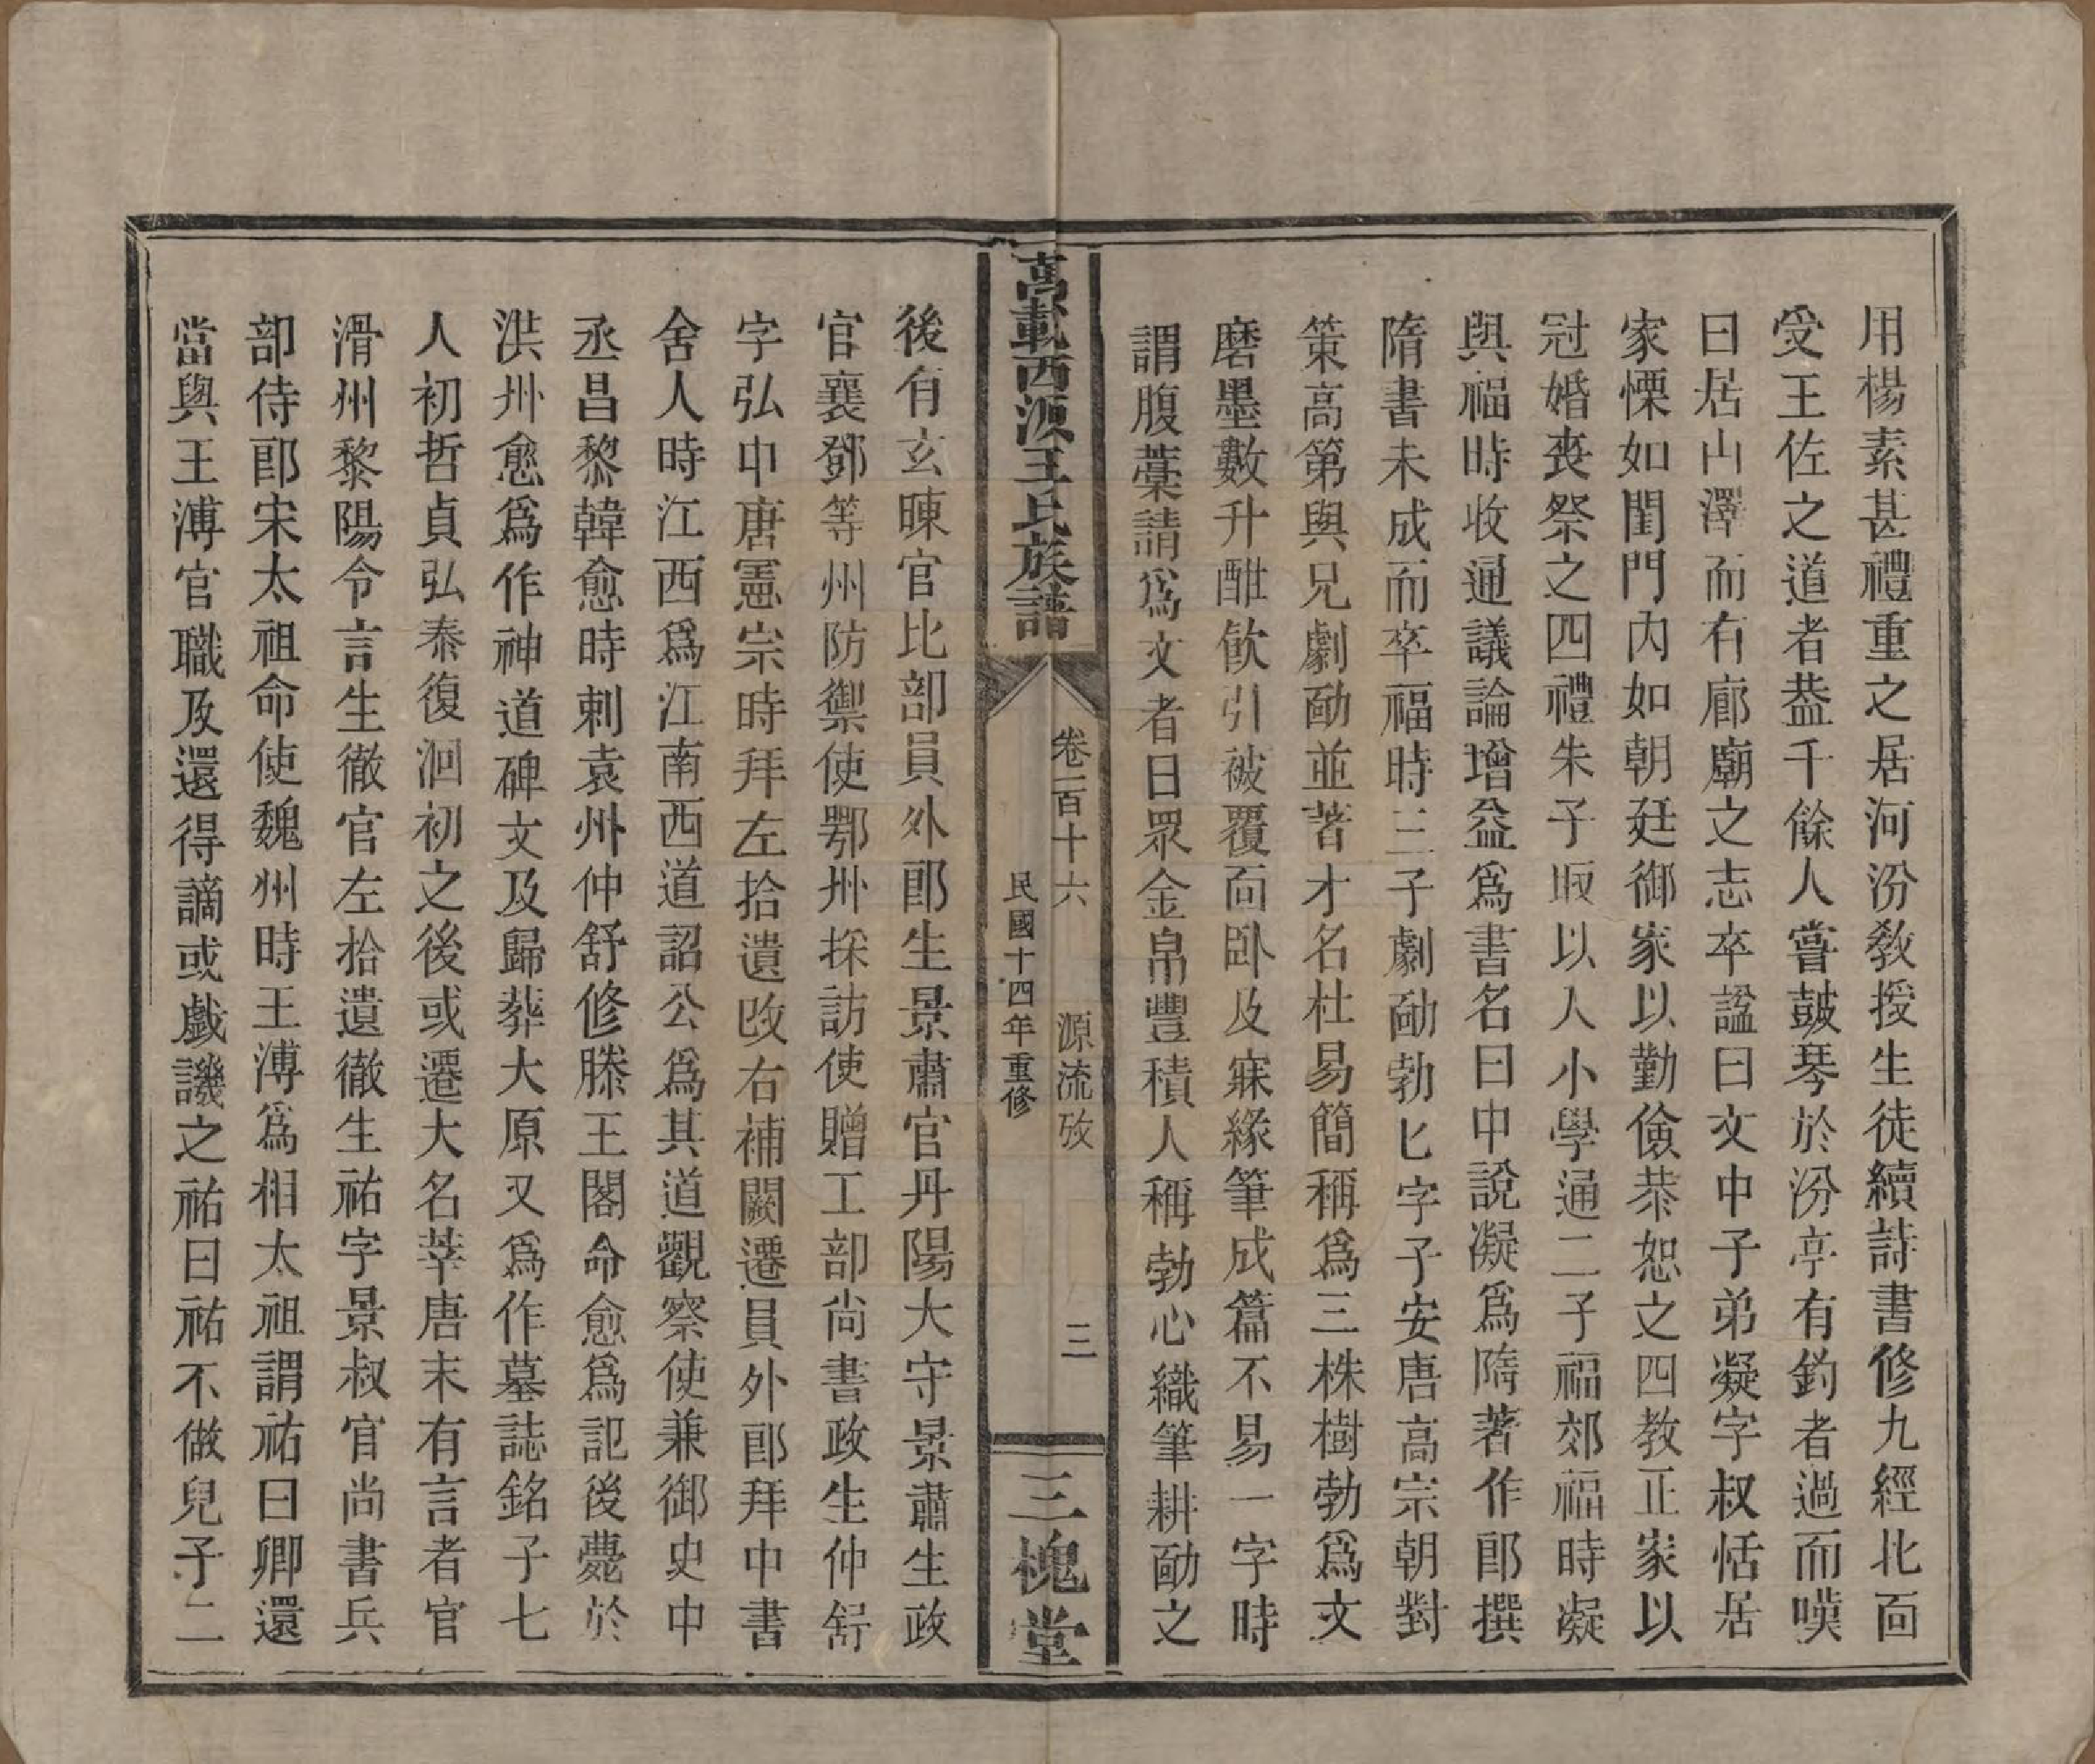 用楊素甚禮重之居河汾教授生徒續詩書修九經北面
受王佐之道者葢千餘人嘗鼓琴於汾亭有釣者過而嘆
曰居山澤而有廊廟之志卒諡曰文中子弟凝字叔恬居
家慄如閨門內如朝廷御家以勤儉恭恕之四教正家以
冠婚喪祭之四禮朱子取以入小學通二子福郊福時凝
與福時收通議論增益爲書名曰中說凝爲隋著作郎撰
隋書未成而卒福時三子劇勔勃匕字子安唐高宗朝對
策高第與兄劇勔並著才名杜易簡稱爲三株樹勃爲文
磨墨數升酣飲引被覆面卧及寐緣筆成篇不易一字時
謂腹藁請爲文者日眾金帛豐積人稱勃心織筆耕勔之
萬載西源王氏族譜
卷一百十六 源流攷 三
民國十四年重修
三槐堂
後有玄暕官比部員外郎生景肅官丹陽大守景肅生政
官襄鄧等州防禦使鄂州採訪使贈工部尚書政生仲舒
字弘中唐憲宗時拜左拾遺改右補闕遷員外郎拜中書
舍人時江西爲江南西道詔公爲其道觀察使兼御史中
丞昌黎韓愈時刺袁州仲舒修滕王閣命愈爲記後薨於
洪州愈爲作神道碑文及歸葬大原又爲作墓誌銘子七
人初哲貞弘泰復洄初之後或遷大名莘唐末有言者官
滑州黎陽令言生徹官左拾遺徹生祐字景叔官尚書兵
部侍郎宋太祖命使魏州時王溥爲相太祖謂祐曰卿還
當與王溥官職及還得謫或戲譏之祐曰祐不做兒子二